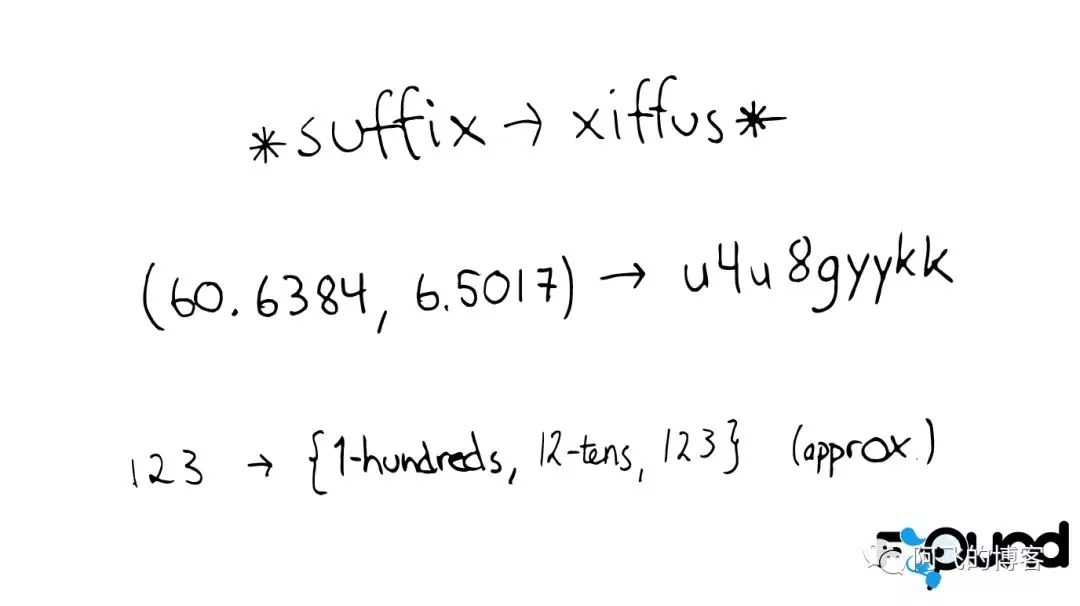 *suffix → xiffus*
(60.6384, 6.5017) → u4u8gyykk
123 → {1-hundreds, 12-tens, 123} (approx.)
阿飞的博客